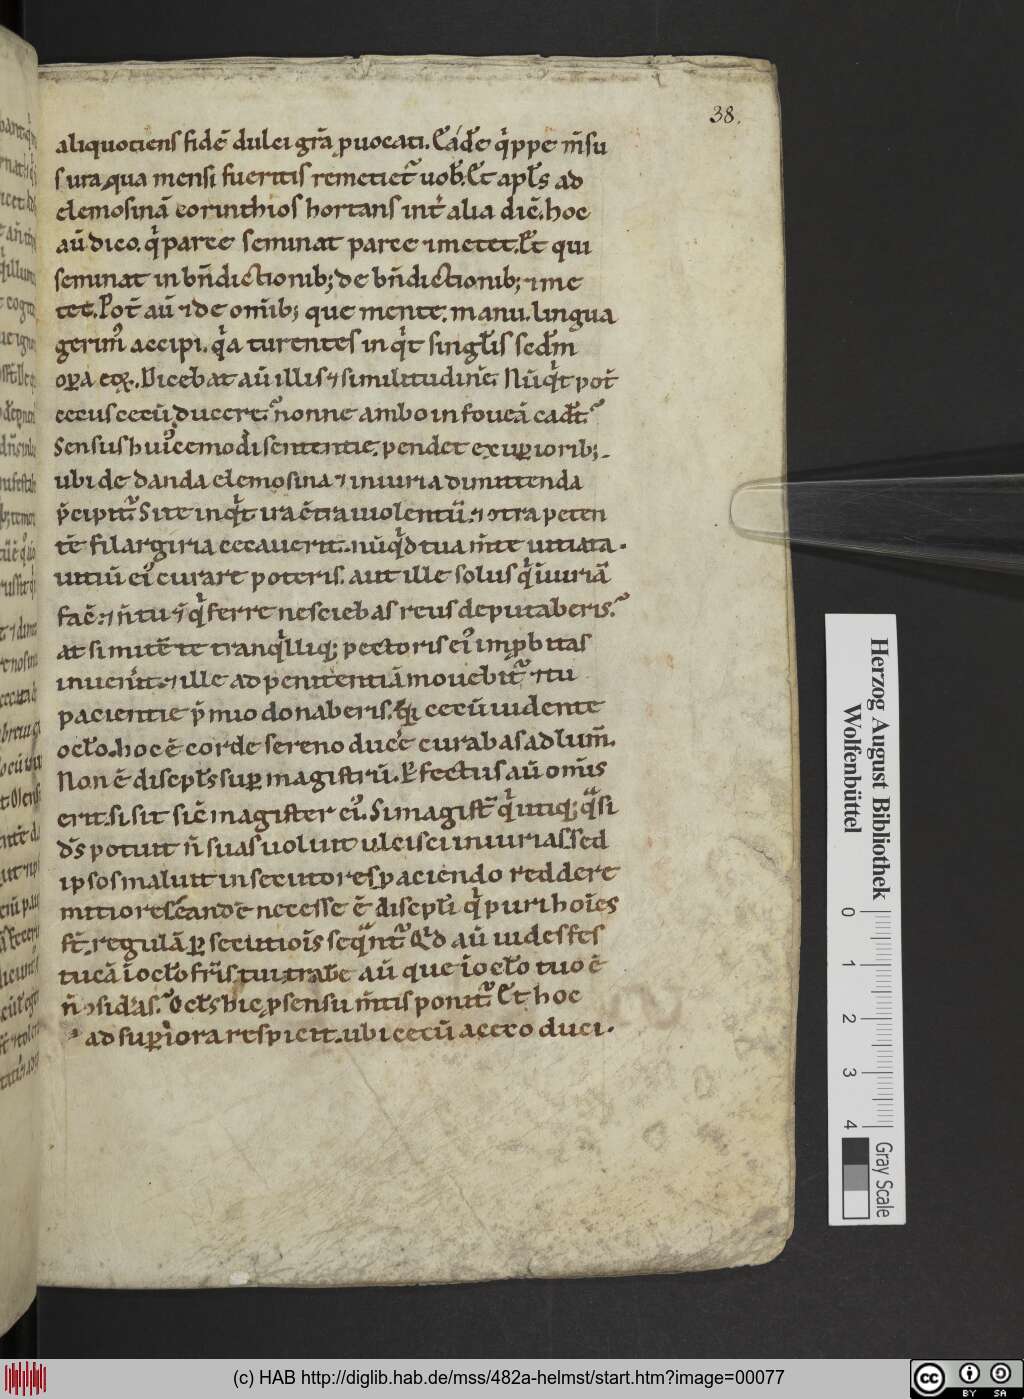 38.
aliquotiens fidē dulci gr̄a ꝓuocati. Eadē q̇ppe m̄su
ſura, qua mensi fueritis remetiet᷑ uob̄. Et apl̄s ad
elemosinā corinthios hortans int̄ alia dic̄. hoc
aū dico. q̇ parce seminat parce ⁊ metet. Et qui
seminat in bn̄dictionib; de bn̄dictionib; ⁊ me
tet. Pot̄ aū ⁊ de om̄ib; que mente. manu. lingua
gerim᷒ accipi. q̇a
Dicebat aū illis ⁊ similitudinē. Nūq̇t pot̄
cecus cecū ducere? nonne ambo in foueā cadt̄?
Sensus hui᷒cemodi sententie. pendet ex suꝑiorib;
ubi de danda elemosina ⁊ iniuria dimittenda
p̄cipit᷑. Si te inq̇t ira ꝯtra uiolentū. ⁊ ꝯtra peten
tē filargiria cecauerit. nūq̇d tua m̄te uitiata.
uitiū ei᷒ curare poteris. aut ille solus q̇ iniuriā
fac̄. ⁊ n̄ tu ⁊ q̇ ferre nesciebas reus deputaberis?
at si mitē te tranq̇lliq; pectoris ei᷒ imꝓbitas
inuenit. ⁊ ille ad penitentiā mouebit᷑. ⁊ tu
pacientie p̄mio donaberis. cecū uidente
ocl̄o. hoc ē corde sereno ducē curabas ad lum̄.
Non ē discipl̄s suꝑ magistrū. Perfectus aū om̄is
erit. si sit sic̄ magister ei᷒. Si magist̄ q̇ utiq; q̄si
ds̄ potuit n̄ suas uoluit ulcisci iniurias, sed
ipsos maluit insecutores paciendo reddere
mitiores, eandē necesse ē discipl̄i q̇ puri hoīes
st̄. regulā ꝑsecutiōis seq̄nt᷑. Qd̄ aū uides fes
tucā ī ocl̄o fr̄is tui. trabē aū que ī ocl̄o tuo ē
n̄ ꝯsid̄as? Ocl̄s hic p̄ sensu m̄tis ponit᷑. Et hoc
ad suꝑiora respicit. ubi cecū a ceco duci.
Herzog August Bibliothek
Wolfenbüttel
0 1 2 3 4
Gray Scale
(c) HAB http://diglib.hab.de/mss/482a-helmst/start.htm?image=00077
cc BY SA